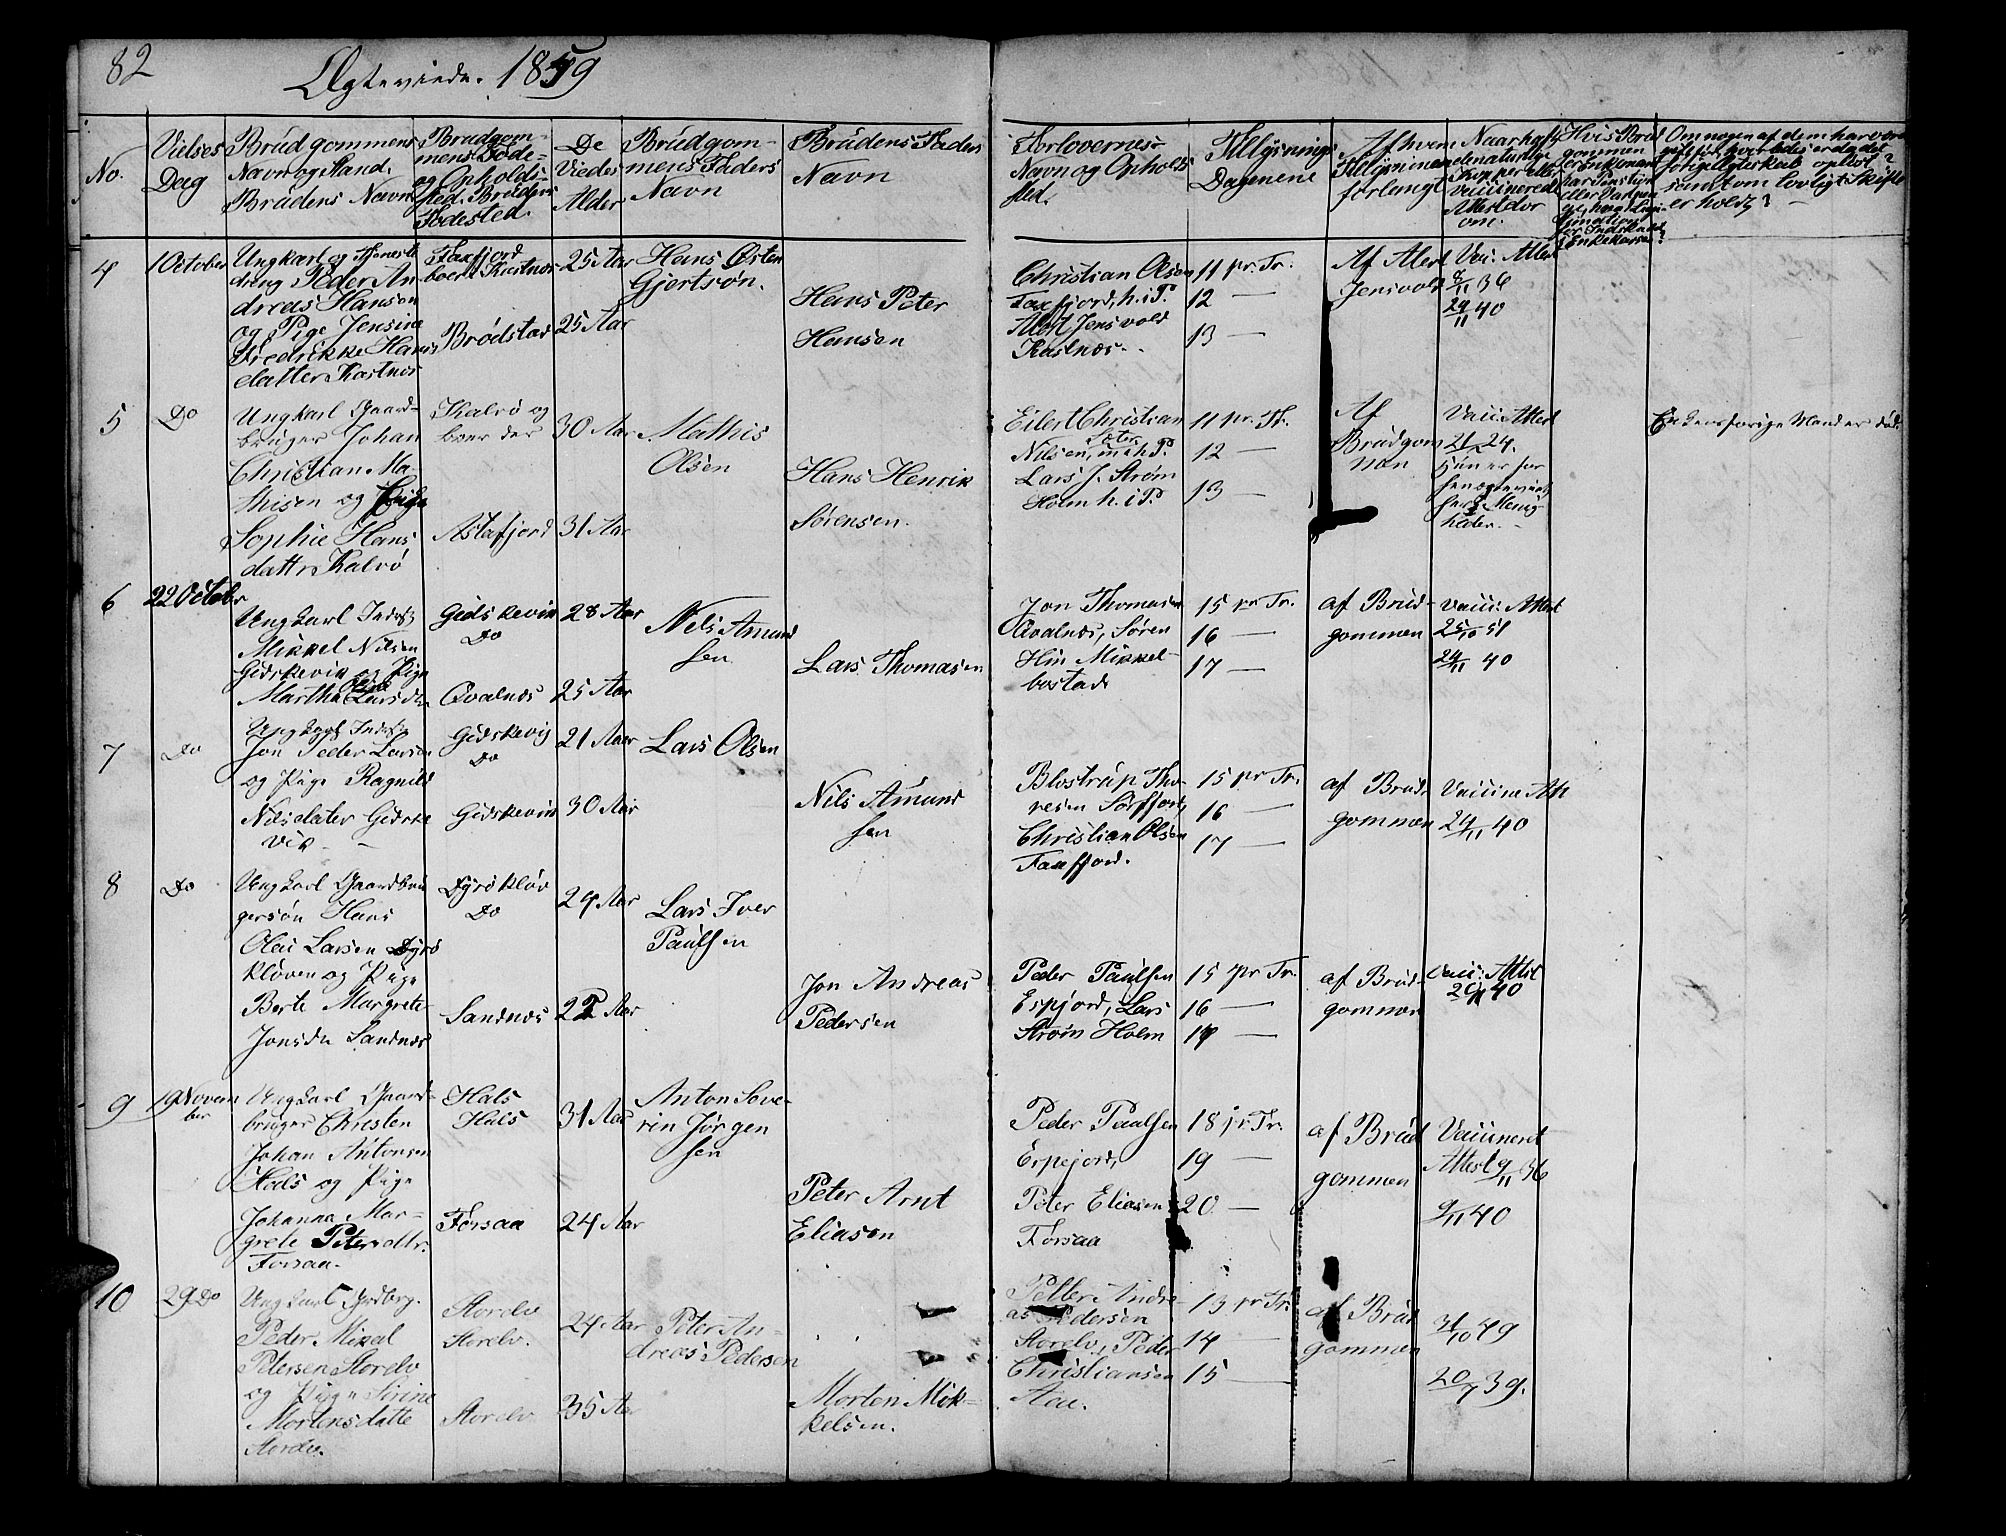 82
Ægteviede. 1859
No.
Vielses
Dag
Brudgommens
Navn og Stand.
Brudens Navn
Brudgom-
mens Føde-
og Opholds-
sted. Brudens
Fødested.
De
Viedes
Alder
Brudgom-
mens Faders
Navn
Brudens Faders
Navn
Forlovernes
Navn og Opholds
sted.
Tillysnings
Dagene
Af hvem
Tillysningen
forlangt
Naar hafte
de naturlige
Kopper eller
vaccinerede
Attest der
om.
Hvis Brud
gommen
Om nogen af dem har været
gift før, hvorledes er da det
forige Ægteskab opløst?
samt om lovligt Skifte
er holdt?
4
1 October
Ungkarl og Tjeneste
dreng Peder An
dreas Hansen
og Pige Jensine
Fredrikke Hans
datter Kastnes
Faxfjord
boer i Kastnes
Brødstad
25 Aar
25 Aar
Hans Østen
Gjertsøn.
Hans Peter
Hansen
Christian Olsen
Faxfjord, h. i P.
Alert Jensvold
Kastnæs.
11 pr. Tr.
12 —
13 —
Af Alert
Jensvold
Vac: Attest
9/11 36
29/11 40
5
Do
Ungkarl Gaard-
bruger Johan
Christian Ma-
thisen og Enke
Sophie Hans
dattr Kalvø
Kalvø og
boer der
Astafjord
30 Aar
31 Aar
Mathis
Olsen
Hans Henrik
Sørensen.
Eilert Christian
Nilsen, Sæter m. h. P.
Lars J. Strøm
Holm h. i P.
11 pr. Tr.
12 —
13 —
Af
Brudgom
men
Vacc: Attest
21 24.
Enkens forige Mand er død.
6
22 Octobr
Ungkarl Inderst
Mikkel Nilsen
Gidskevik og Pige
Martha Olina Larsdtr
Gidskevik
Do
Qvalnæs
28 Aar
25 Aar
Nils Amund
sen
Lars Thomasen
Jon Thomasen
Qvalnæs, Søren
Hin Mikkel-
bostad
15 pr Tr.
16 —
17 —
af Brud-
gommen
Vacc: Attest
25/10 51
24/11 40
7
Do
Ungkarl Inderst
Jon Peder Larsen
og Pige Ragnild
Nilsdater Gidske
vik
Gidskevig
Do
Gidskevik
21 Aar
30 Aar
Lars Olsen
Nils Amund
sen
Blostrup Tho-
resen Sørfjord,
Christian Olsen
Faxfjord.
15 pr Tr.
16 —
17 —
af Brud-
gommen
Vaccine Att
24/11 40
8
Do
Ungkarl Gaardbru
gersøn Hans
Olai Larsen Dyrø
kløven og Pige
Berte Margrete
Jonsdtr Sandnæs
Dyrø kløv
Do
Sandnæs
24 Aar
22 Aar
Lars Iver
Paulsen
Jon Andreas
Pedersen
Peder Paulsen
Espejord, Lars
Strøm Holm
15 pr Tr.
16 —
17 —
af Brud-
gommen
Vacc: Attest
29/11 40
9
19 Novem
ber
Ungkarl Gaard-
bruger Christen
Johan Antonsen
Hals og Pige
Johanna Mar-
grete Petersdtr.
Forsaa.
Hals
Hals
Forsaa
31 Aar
24 Aar
Anton Seve-
rin Jørgen
sen
Peter Arnt
Eliasen
Peder Paulsen
Espejord,
Peter Eliasen
Forsaa
18 pr. Tr.
19 —
20 —
af Brud
gommen
Vaccineret
Attest 9/11 36
9/11 40
10
29 Do
Ungkarl Jordbrg.
Peder Mikal
Petersen Storelv
og Pige Sirine
Mortensdatte
Storelv.
Storelv
Storelv.
Storelv
24 Aar
35 Aar
Peter An-
dreas Pedersen
Morten Mik-
kelsen.
Petter Andre-
as Pedersen
Storelv, Peder
Christiansen
Aae.
13 pr Tr.
14 —
15 —
af Brud
gommen
31/10 49
20/7 39.